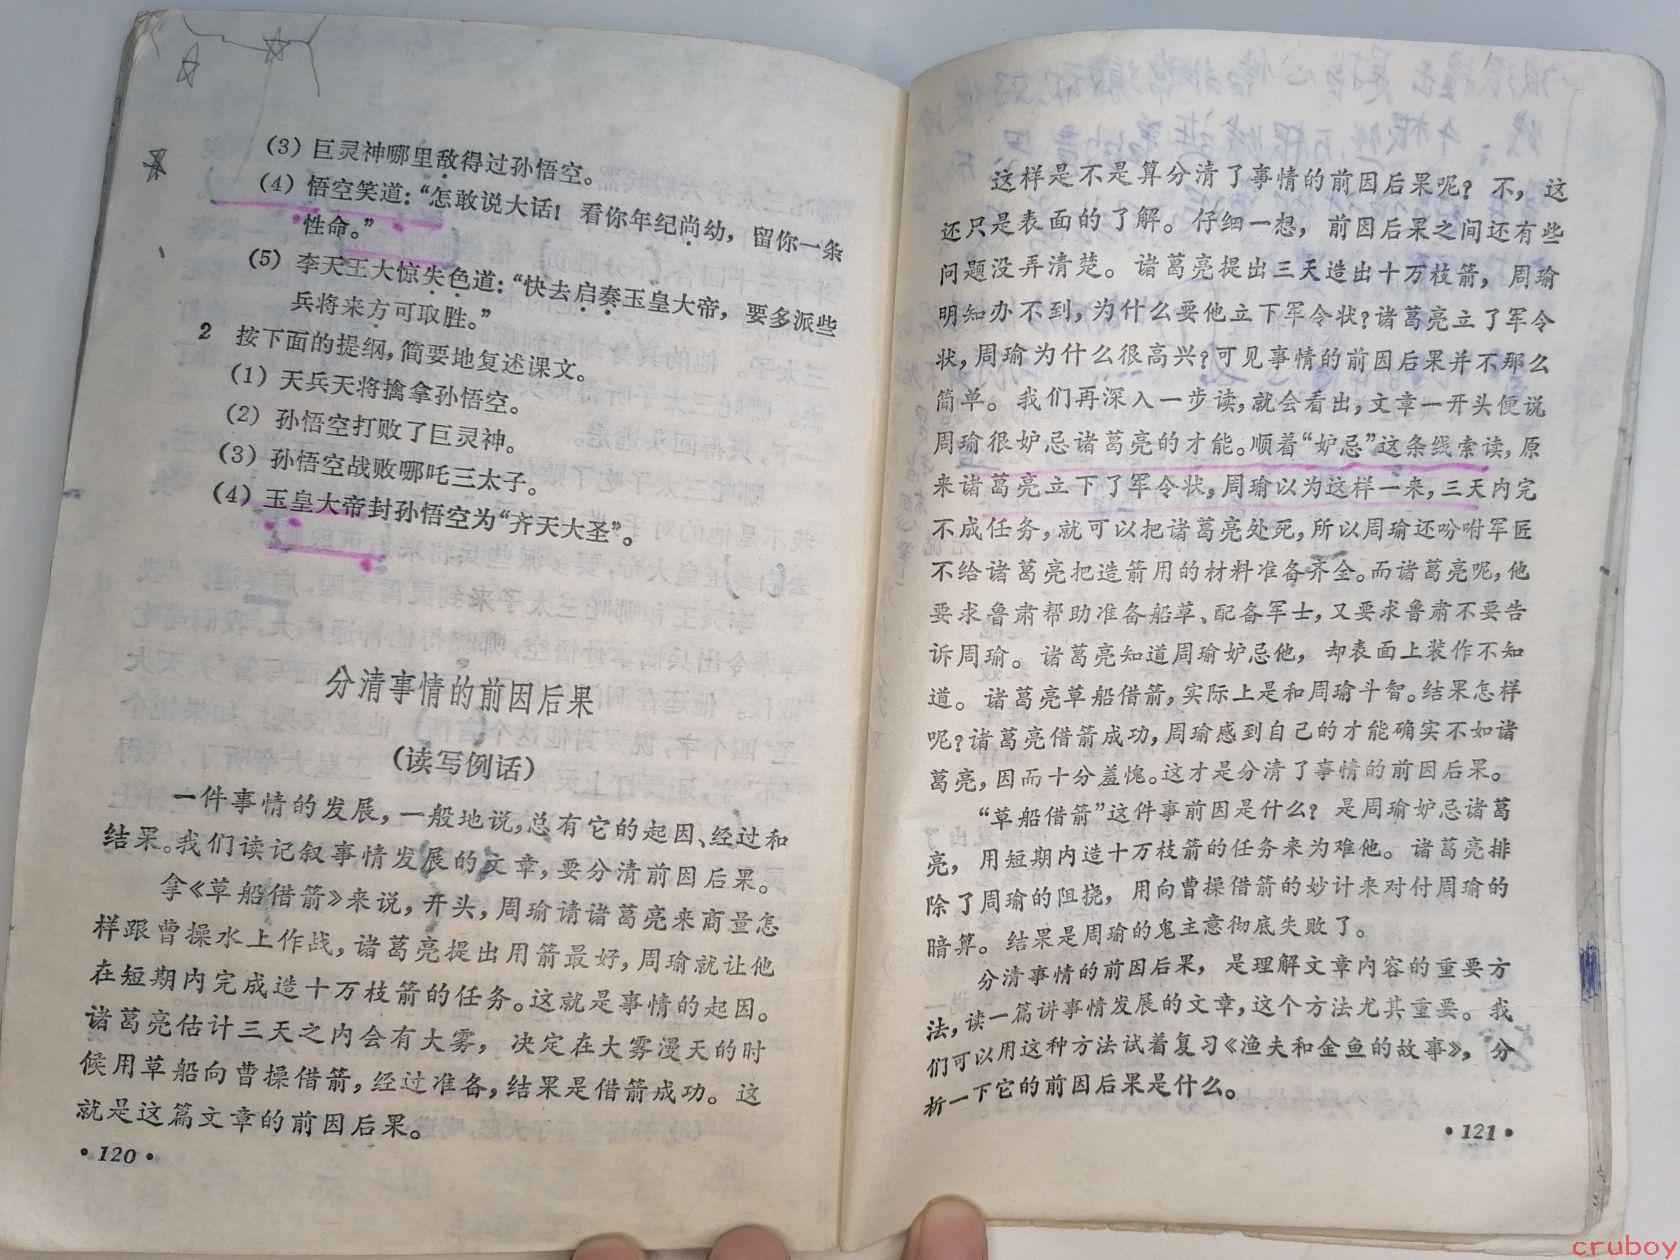 (3) 巨灵神哪里敌得过孙悟空。
(4) 悟空笑道：“怎敢说大话！看你年纪尚幼，留你一条
性命。”
(5) 李天王大惊失色道：“快去启奏玉皇大帝，要多派些
兵将来方可取胜。”
2 按下面的提纲，简要地复述课文。
(1) 天兵天将擒拿孙悟空。
(2) 孙悟空打败了巨灵神。
(3) 孙悟空战败哪吒三太子。
(4) 玉皇大帝封孙悟空为“齐天大圣”。
分清事情的前因后果
（读写例话）
一件事情的发展，一般地说，总有它的起因、经过和
结果。我们读记叙事情发展的文章，要分清前因后果。
拿《草船借箭》来说，开头，周瑜请诸葛亮来商量怎
样跟曹操水上作战，诸葛亮提出用箭最好，周瑜就让他
在短期内完成造十万枝箭的任务。这就是事情的起因。
诸葛亮估计三天之内会有大雾，决定在大雾漫天的时
候用草船向曹操借箭，经过准备，结果是借箭成功。这
就是这篇文章的前因后果。
·120·
这样是不是算分清了事情的前因后果呢？不，这
还只是表面的了解。仔细一想，前因后果之间还有些
问题没弄清楚。诸葛亮提出三天造出十万枝箭，周瑜
明知办不到，为什么要他立下军令状？诸葛亮立了军令
状，周瑜为什么很高兴？可见事情的前因后果并不那么
简单。我们再深入一步读，就会看出，文章一开头便说
周瑜很妒忌诸葛亮的才能。顺着“妒忌”这条线索读，原
来诸葛亮立下了军令状，周瑜以为这样一来，三天内完
不成任务，就可以把诸葛亮处死，所以周瑜还吩咐军匠
不给诸葛亮把造箭用的材料准备齐全。而诸葛亮呢，他
要求鲁肃帮助准备船草、配备军士，又要求鲁肃不要告
诉周瑜。诸葛亮知道周瑜妒忌他，却表面上装作不知
道。诸葛亮草船借箭，实际上是和周瑜斗智。结果怎样
呢？诸葛亮借箭成功，周瑜感到自己的才能确实不如诸
葛亮，因而十分羞愧。这才是分清了事情的前因后果。
“草船借箭”这件事前因是什么？是周瑜妒忌诸葛
亮，用短期内造十万枝箭的任务来为难他。诸葛亮排
除了周瑜的阻挠，用向曹操借箭的妙计来对付周瑜的
暗算。结果是周瑜的鬼主意彻底失败了。
分清事情的前因后果，是理解文章内容的重要方
法，读一篇讲事情发展的文章，这个方法尤其重要。我
们可以用这种方法试着复习《渔夫和金鱼的故事》，分
析一下它的前因后果是什么。
·121·
cruboy